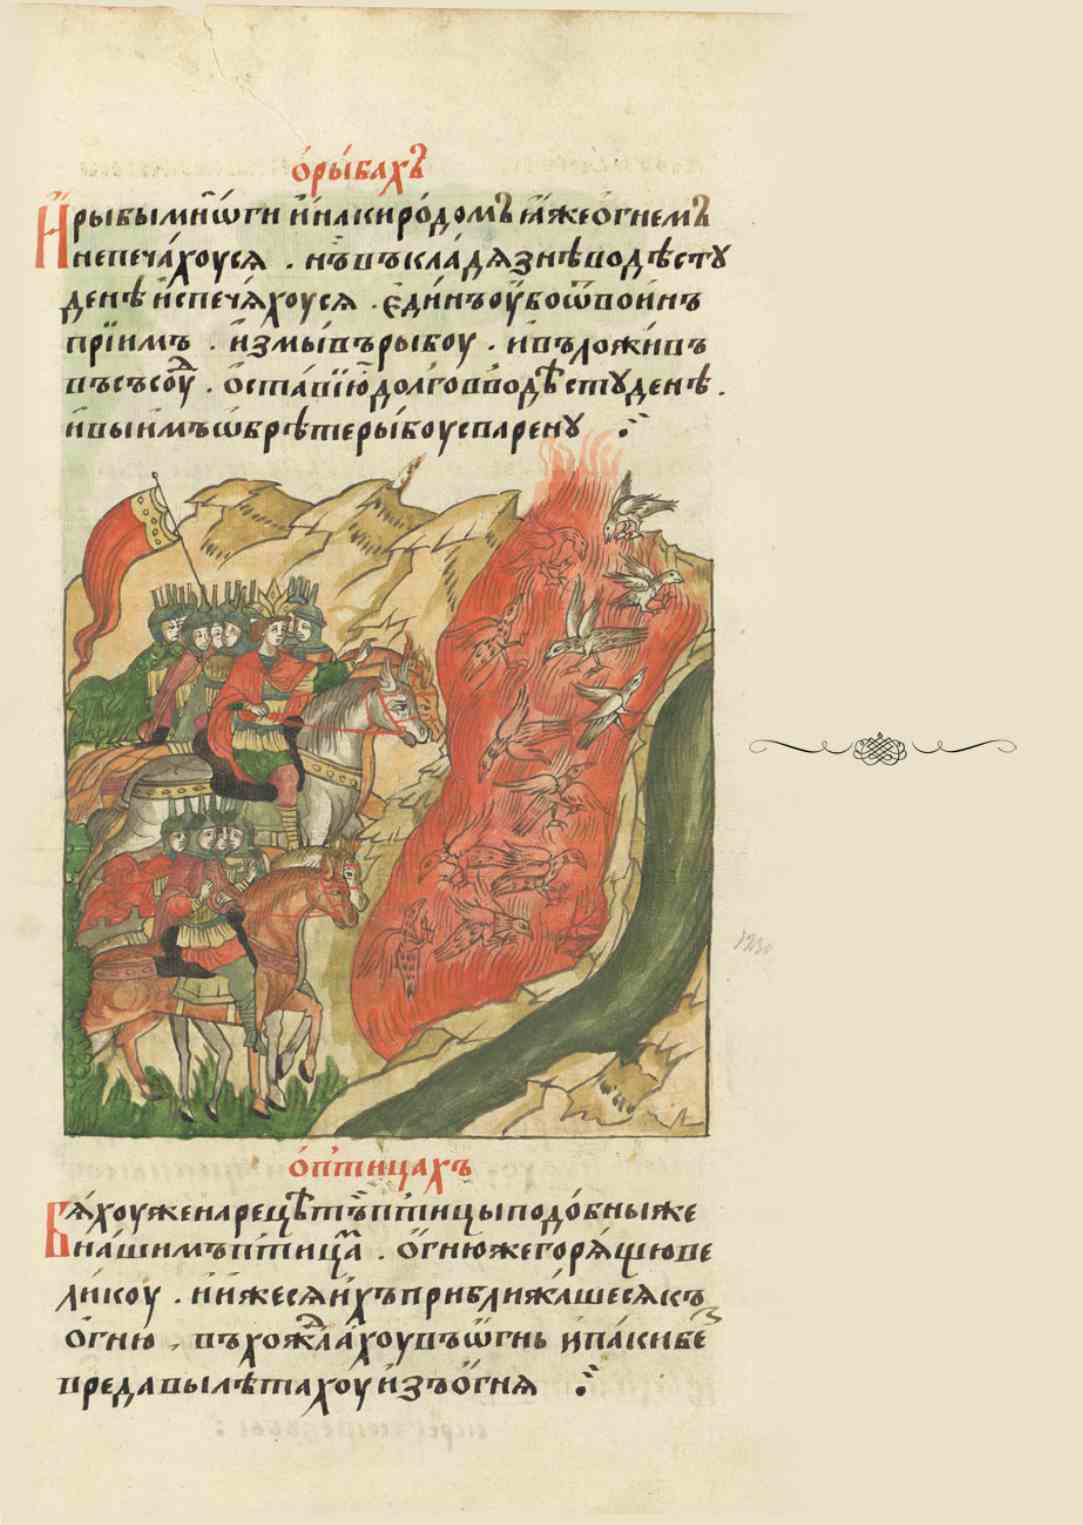 о́ры́бахъ
И҆рыбымнѝѡ҆гни и҆и҆накиро́домъ ꙗ҆́жео҆гнемъ
непеча́хоуся . нъ̀въкла́дязнѣводѣстꙋ
денѣ и҆спеча́хоуся . є҆ди́нъоу҆́боѿвои́нъ
прїи́мъ . и҆змы́въры́боу . и҆въложи́въ
въсъсо́уд . о҆ста́вїю҆̀долговводѣстꙋ́денѣ .
и҆вы́и́мъѡ҆брѣтеры́боуспаренꙋ̀
о҆пти́цахъ
Бя́хоуженарецѣтъ̀пти́цыподо́бныже
на́шимъпти́цам . о҆́гнюжегоря́щюве
ли́коу . и҆и҆́жеся̀и҆́хъприближа́шесякъ
о҆гню̀ . въхожда́хоувъѡ҆гнь и҆па́кибез
вредавылѣта́хоу и҆зъо҆гня̀